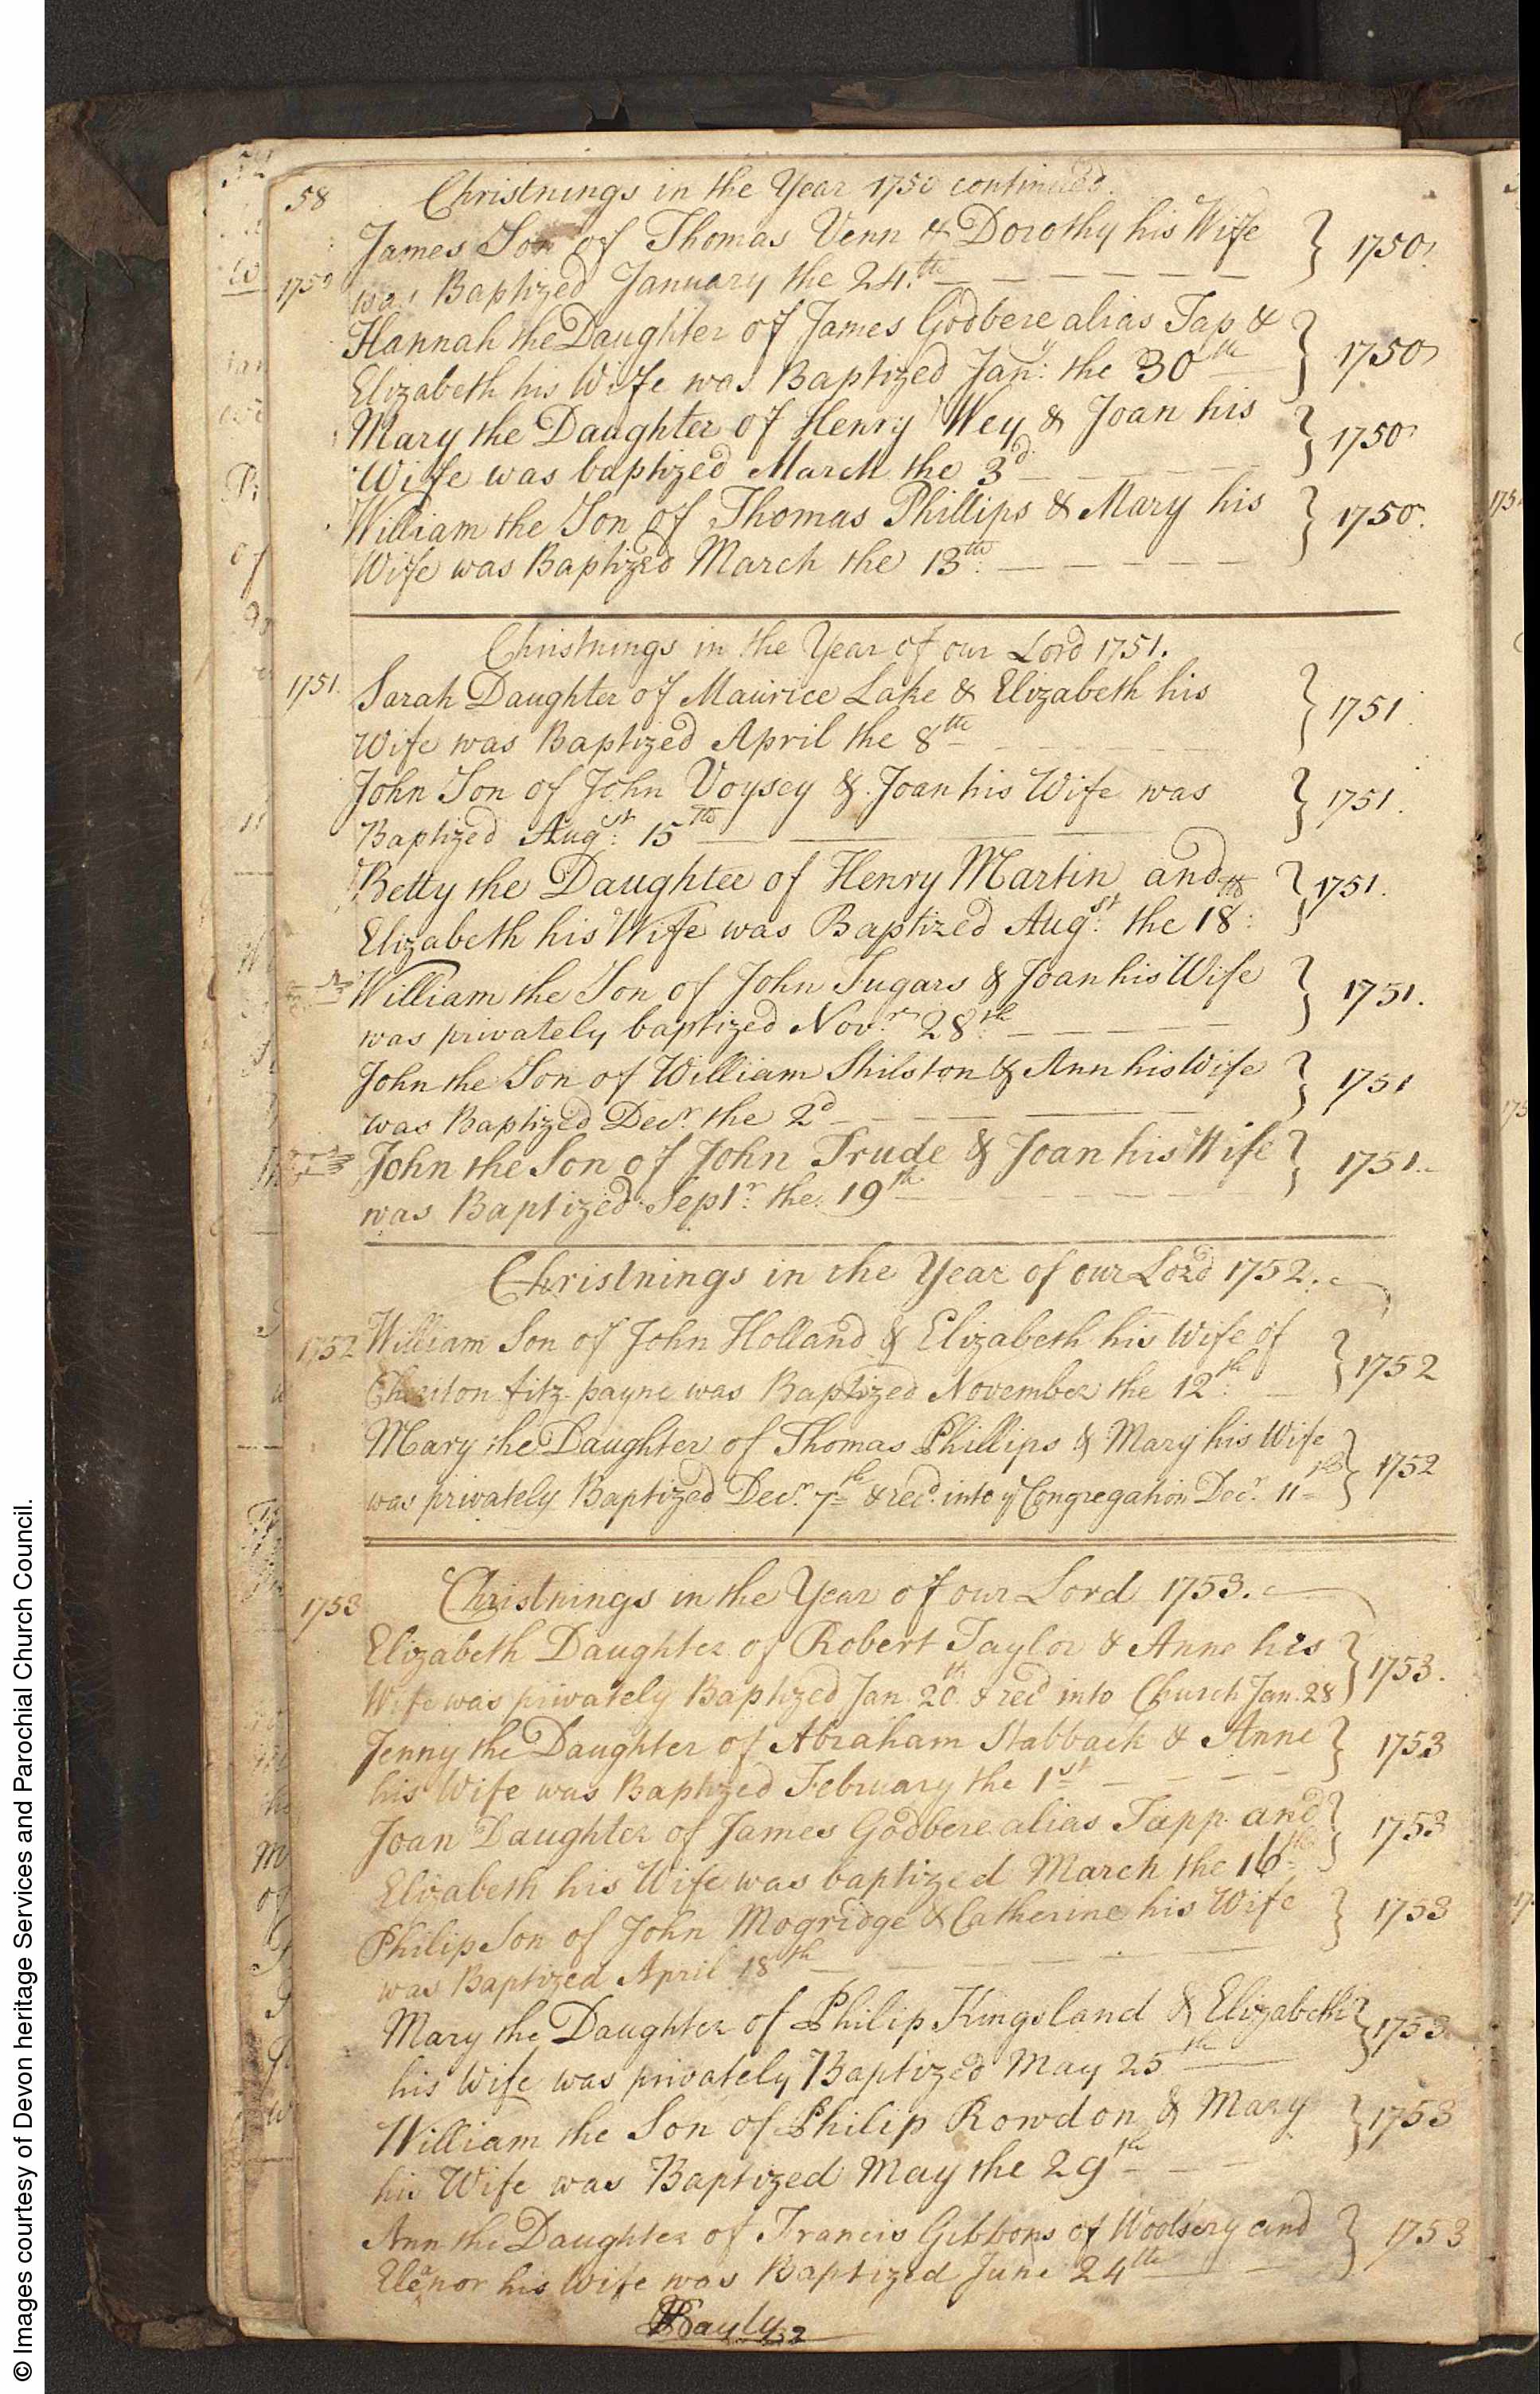 58 Christnings in the Year 1750 continued.
James Son of Thomas Venn & Dorothy his Wife } 1750
1750 was Baptized January the 24th
Hannah the Daughter of James Godbere alias Tap & } 1750
Elizabeth his Wife was Baptized Jany: the 30th
Mary the Daughter of Henry Wey & Joan his } 1750
Wife was baptized March the 3d
William the Son of Thomas Phillips & Mary his } 1750.
Wife was Baptized March the 13th
Christnings in the Year of our Lord 1751.
1751. Sarah Daughter of Maurice Lake & Elizabeth his } 1751
Wife was Baptized April the 8th
John Son of John Voysey & Joan his Wife was } 1751.
Baptized Augst: 15Th
Betty the Daughter of Henry Martin and } 1751.
Elizabeth his Wife was Baptized Augst: the 18th:
William the Son of John Sugars & Joan his Wife } 1751.
was privately baptized Novr 28th
John the Son of William Shilston & Ann his Wife } 1751
was Baptized Decr. the 2d
John the Son of John Trude & Joan his Wife } 1751.
was Baptized Septr: the 19th
Christnings in the Year of our Lord 1752.
1752 William Son of John Holland & Elizabeth his Wife of } 1752
Cheriton fitz-payne was Baptized November the 12th
Mary the Daughter of Thomas Phillips & Mary his Wife } 1752
was privately Baptized Decr. 7th & recd. into ye Congregation Decr. 11th
1753 Christnings in the Year of our Lord 1753.
Elizabeth Daughter of Robert Taylor & Anne his } 1753.
Wife was privately Baptized Jan. 20th & recd into Church Jan. 28
Jenny the Daughter of Abraham Stabback & Anne } 1753
his Wife was Baptized February the 1st
Joan Daughter of James Godbere alias Tapp and } 1753
Elizabeth his Wife was baptized March the 16th
Philip Son of John Mogridge & Catherine his Wife } 1753
was Baptized April 18th
Mary the Daughter of Philip Kingsland & Elizabeth } 1753
his Wife was privately Baptized May 25th
William the Son of Philip Rowdon & Mary } 1753
his Wife was Baptized May the 29th
Ann the Daughter of Francis Gibbons of Woolsery and } 1753
Elenor his Wife was Baptized June 24th
© Images courtesy of Devon heritage Services and Parochial Church Council.